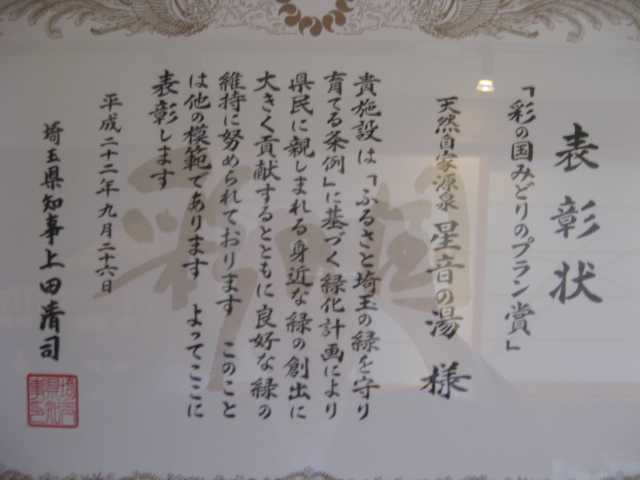 表彰状
「彩の国みどりのプラン賞」
天然自家源泉 星音の湯 様
貴施設は「ふるさと埼玉の緑を守り
育てる条例」に基づく緑化計画により
県民に親しまれる身近な緑の創出に
大きく貢献するとともに良好な緑の
維持に努められております このこと
は他の模範であります よってここに
表彰します
平成二十二年九月二十六日
埼玉県知事上田清司
埼玉県知事之印